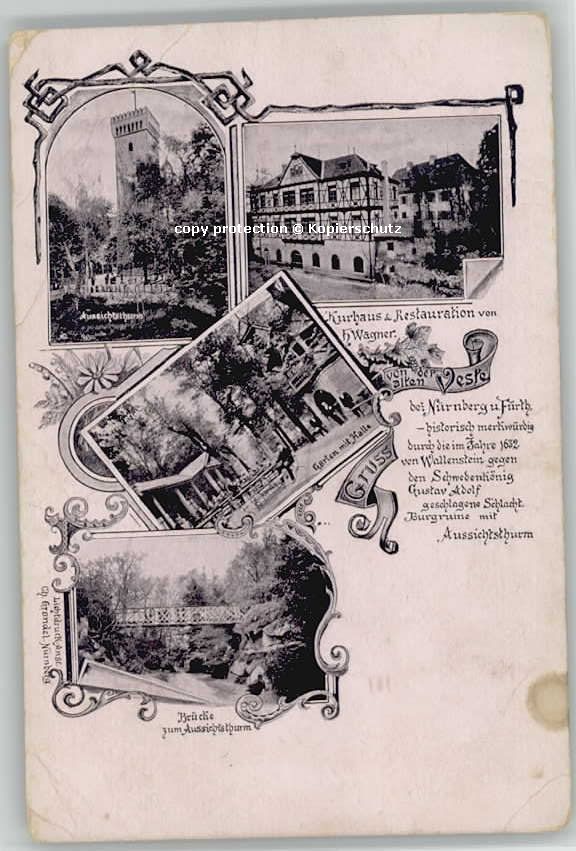 Aussichtsthurm
copy protection © Kopierschutz
Kurhaus & Restauration von
H Wagner.
Gruss
von der
alten Veste
bei Nürnberg u Fürth,
- historisch merkwürdig
durch die im Jahre 1632
von Wallenstein gegen
den Schwedenkönig
Gustav Adolf
geschlagene Schlacht.
Burgruine mit
Aussichtsthurm
Garten mit Halle
Brücke
zum Aussichtsthurm
Lichtdruck-Anst.
Nürnberg